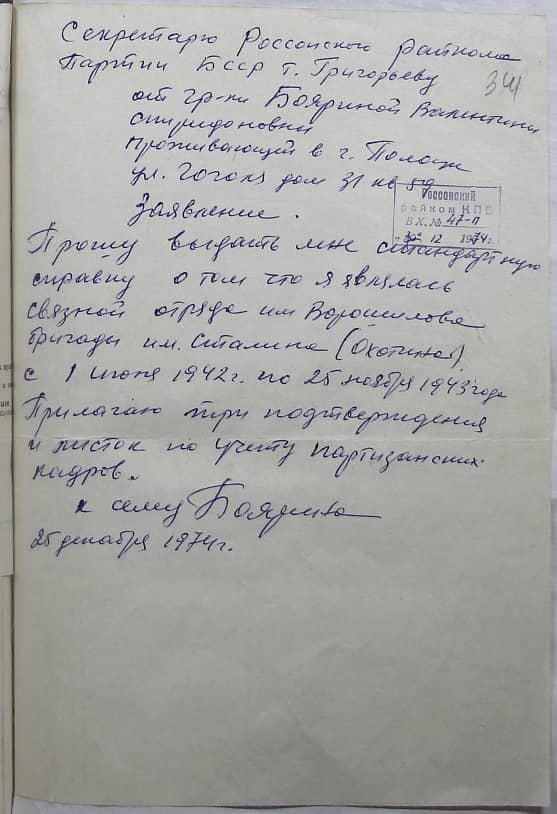 Секретарю Россонского райкома
Партии БССР т. Григорьеву
341
от гр-ки Бояриной Валентины
Спиридоновны
проживающей в г. Полоцк
ул. Гоголя дом 31 кв 59
Россонский
райком КПБ
ВХ. № 47-П
"30" 12 1974 г.
Заявление.
Прошу выдать мне стандартную
справку о том что я являлась
связной отряда им Ворошилова
бригады им. Сталина (Охотина)
с 1 июня 1942 г. по 25 ноября 1943 года
Прилагаю три подтверждения
и листок по учету партизанских
кадров.
к сему Боярина
25 декабря 1974 г.